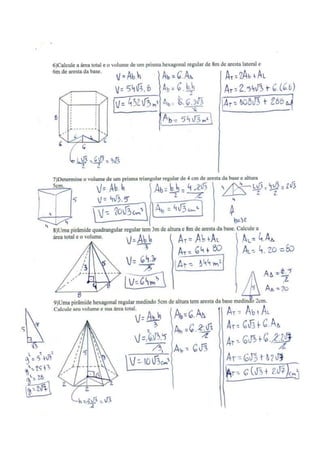 6)Calcule a área total e o volume de um prisma hexagonal regular de 8m de aresta lateral e
6m de aresta da base.
V = Ab.h
V = 54√3.8
V = 432√3 m³
Ab = 6.AΔ
Ab = 54√3 m²
AT = 2Ab + AL
AT = 2.54√3 + 6.(6.8)
8
6
6
6√3/2 = 3√3
7)Determine o volume de um prisma triangular regular de 4 cm de aresta da base e altura
5cm.
V = Ab.h
V = 4√3.5
V = 20√3 cm³
Ab = b.h/2 = 4.2√3/2
Ab = 4√3 cm²
4√3/2 = 2√3
base
5
4
8)Uma pirâmide quadrangular regular tem 3m de altura e 8m de aresta da base. Calcule a
área total e o volume.
V = Ab.h/3
V = 64.3/3
V = 64 m³
AT = Ab + AL
AT = 64 + 80
AT = 144 m²
AL = 4.AΔ
AL = 4.20 = 80
AΔ = 20
9)Uma pirâmide hexagonal regular medindo 5cm de altura tem aresta da base medindo 2cm.
Calcule seu volume e sua área total.
V = Ab.h/3
V = 6√3.5/3
V = 10√3 cm³
Ab = 6.AΔ
Ab = 6.2√3/2
Ab = 6√3
AT = Ab + AL
AT = 6√3 + 6.AΔ
AT = 6√3 + 6.2.2√7/2
AT = 6√3 + 12√7
AT = 6(√3 + 2√7) cm²
5
√3
g² = 5² + √3²
g² = 25 + 3
g² = 28
g = 2√7
2
2
h = 2√3/2 = √3